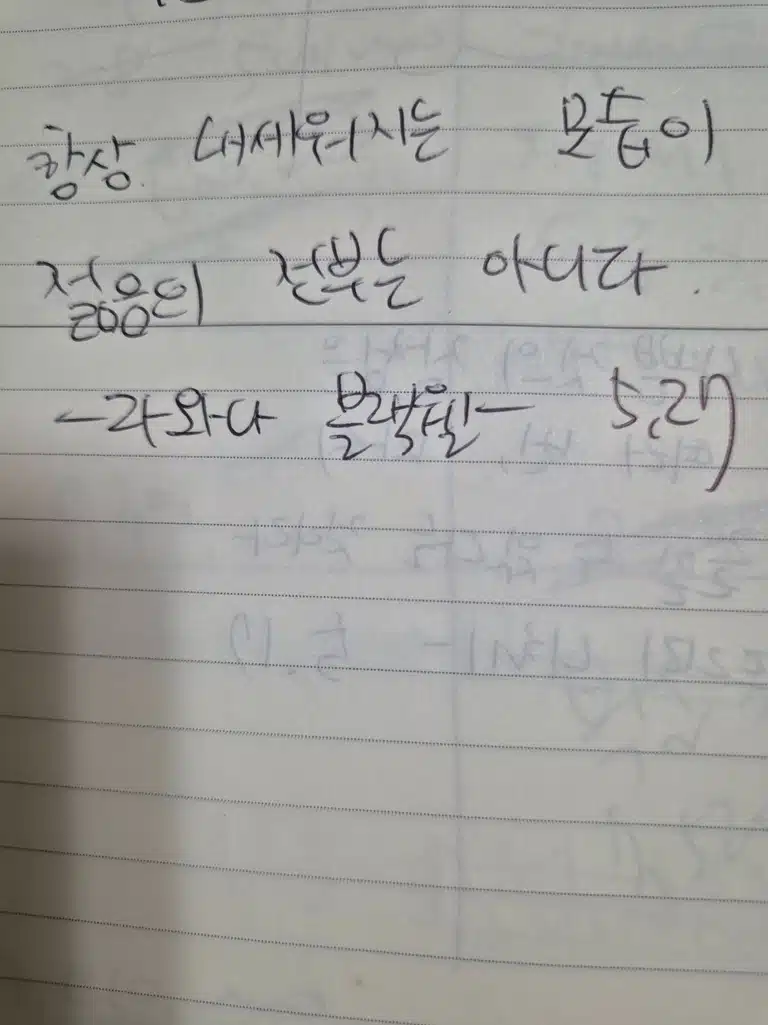 항상 내세워지는 모습이
젊음의 전부는 아니다.
-라와나 블랙웰- 5.27